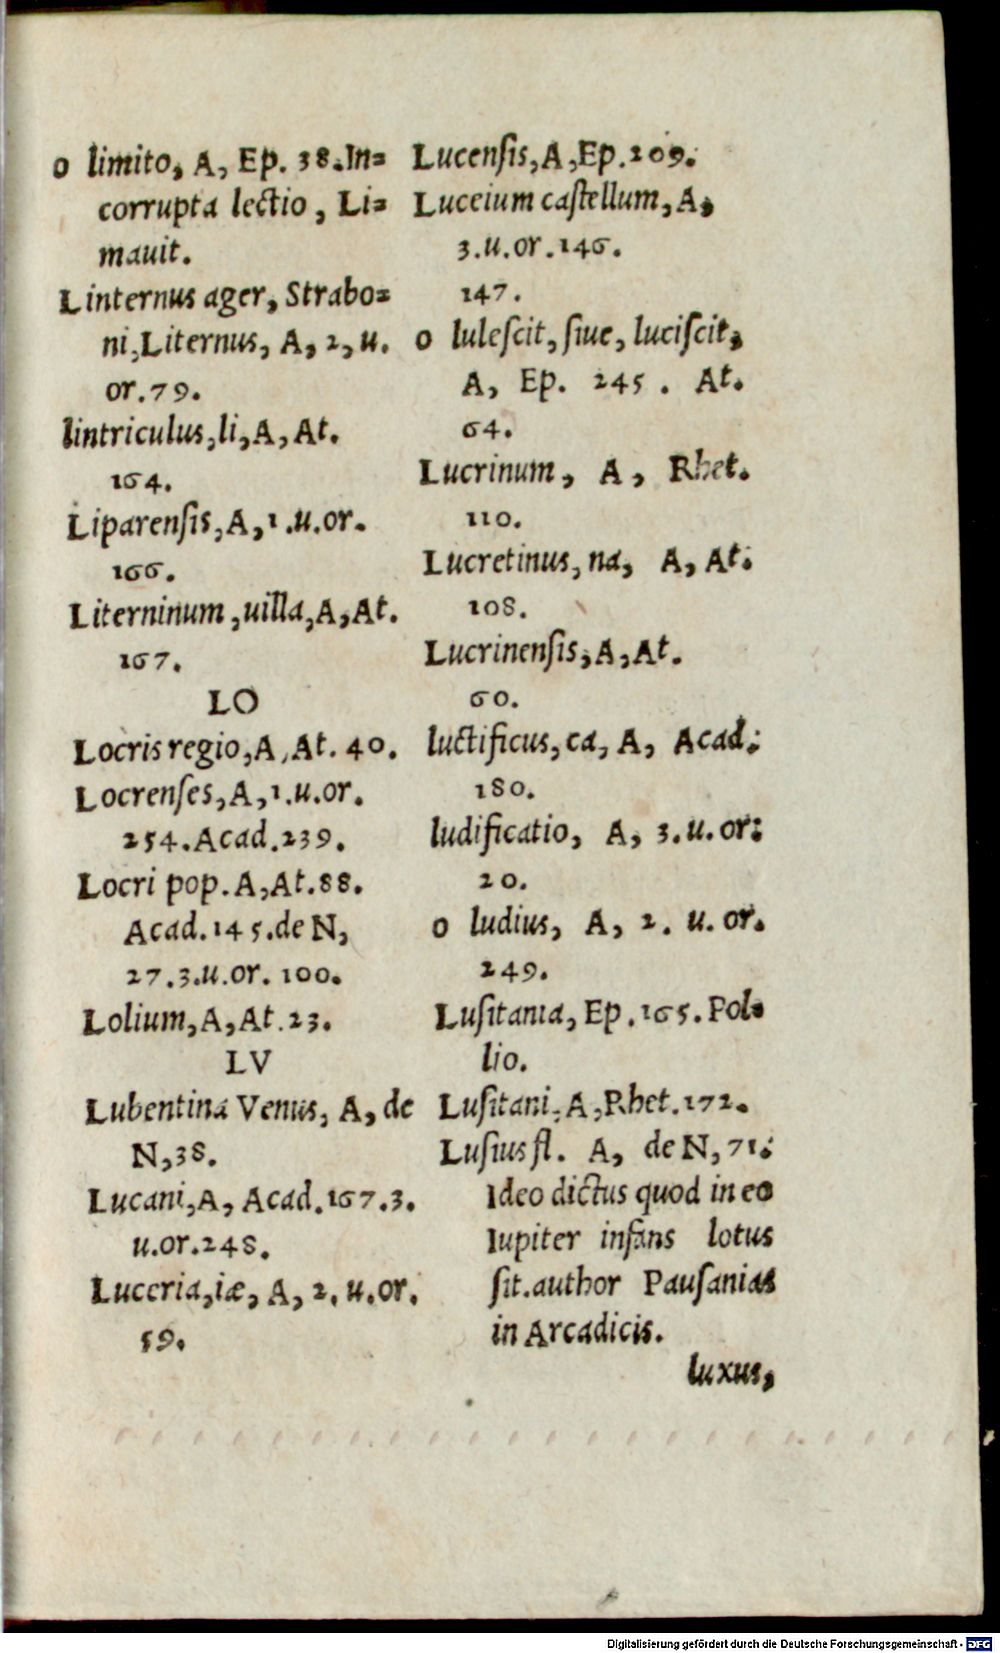 o limito, A, Ep. 38. In=
corrupta lectio, Li=
mauit.
Linternus ager, Strabo=
ni, Liternus, A, 2, u.
or. 79.
lintriculus, li, A, At.
164.
Liparensis, A, 1. u. or.
166.
Literninum, uilla, A, At.
167.
LO
Locris regio, A, At. 40.
Locrenses, A, 1. u. or.
254. Acad. 239.
Locri pop. A, At. 88.
Acad. 145. de N,
27. 3. u. or. 100.
Lolium, A, At. 23.
LV
Lubentina Venus, A, de
N, 38.
Lucani, A, Acad. 167. 3.
u. or. 248.
Luceria, iæ, A, 2. u. or.
59.
Lucenſis, A, Ep. 209.
Luceium caſtellum, A,
3. u. or. 146.
147.
o luleſcit, ſiue, luciſcit,
A, Ep. 245. At.
64.
Lucrinum, A, Rhet.
110.
Lucretinus, na, A, At.
108.
Lucrinenſis, A, At.
60.
luctificus, ca, A, Acad.
180.
ludificatio, A, 3. u. or.
20.
o ludius, A, 2. u. or.
249.
Luſitania, Ep. 165. Pol=
lio.
Luſitani, A, Rhet. 172.
Luſius fl. A, de N, 71.
Ideo dictus quod in eo
Iupiter infans lotus
ſit. author Pauſanias
in Arcadicis.
luxus,
Digitalisierung gefördert durch die Deutsche Forschungsgemeinschaft - DFG